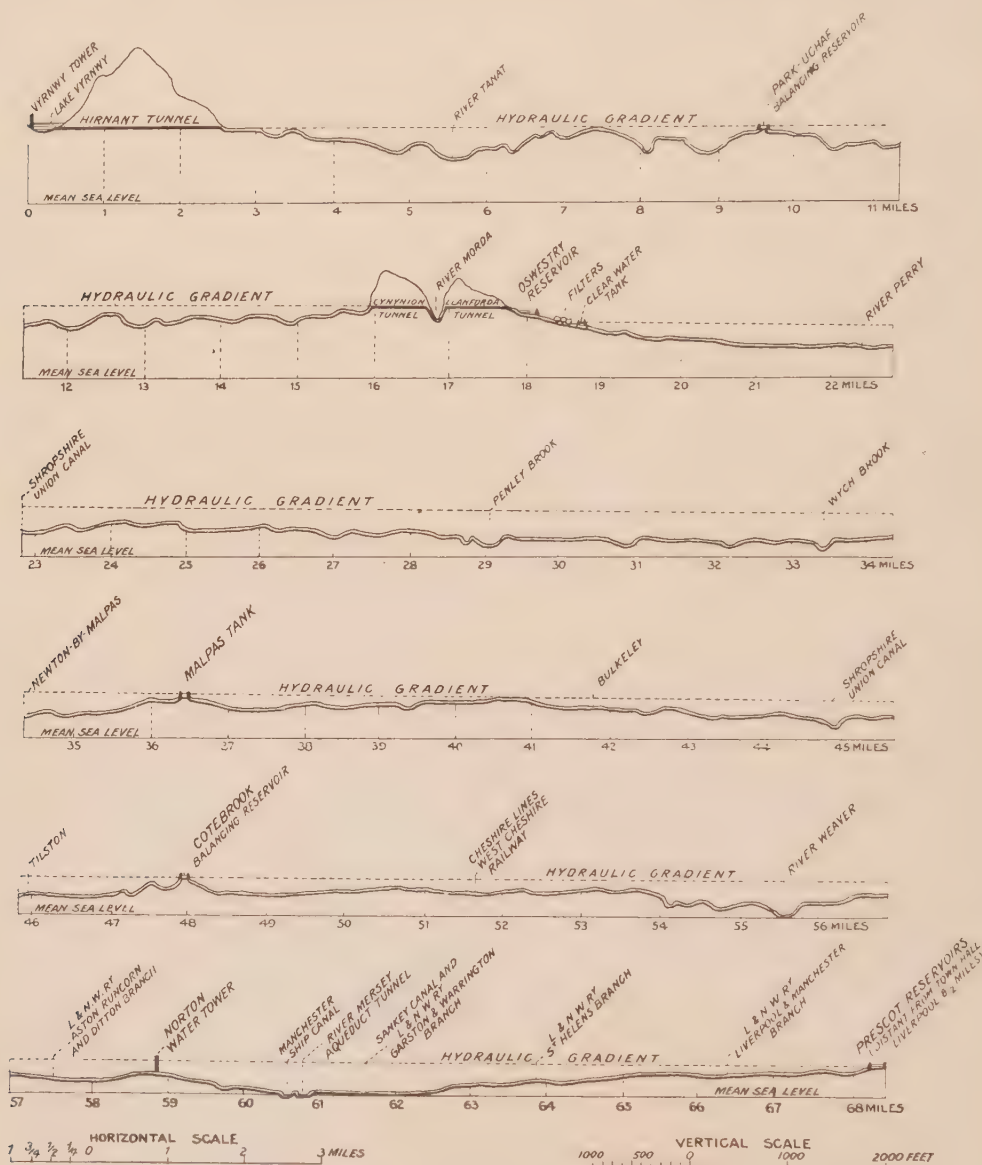 VYRNWY TOWER
LAKE VYRNWY
HIRNANT TUNNEL
RIVER TANAT
HYDRAULIC GRADIENT
PARK-UCHAF
BALANCING RESERVOIR
MEAN SEA LEVEL
0 1 2 3 4 5 6 7 8 9 10 11 MILES
HYDRAULIC GRADIENT
CYNYNION
TUNNEL
RIVER MORDA
LLANFORDA
TUNNEL
OSWESTRY
RESERVOIR
FILTERS
CLEAR WATER
TANK
RIVER PERRY
MEAN SEA LEVEL
12 13 14 15 16 17 18 19 20 21 22 MILES
SHROPSHIRE
UNION CANAL
HYDRAULIC GRADIENT
PENLEY BROOK
WYCH BROOK
MEAN SEA LEVEL
23 24 25 26 27 28 29 30 31 32 33 34 MILES
NEWTON-BY-MALPAS
MALPAS TANK
HYDRAULIC GRADIENT
BULKELEY
SHROPSHIRE
UNION CANAL
MEAN SEA LEVEL
35 36 37 38 39 40 41 42 43 44 45 MILES
TILSTON
COTEBROOK
BALANCING RESERVOIR
CHESHIRE LINES
WEST CHESHIRE
RAILWAY
HYDRAULIC GRADIENT
RIVER WEAVER
MEAN SEA LEVEL
46 47 48 49 50 51 52 53 54 55 56 MILES
L & N. W. RY
ASTON RUNCORN
AND DITTON BRANCH
NORTON
WATER TOWER
MANCHESTER
SHIP CANAL
RIVER MERSEY
AQUEDUCT TUNNEL
SANKEY CANAL AND
L & N.W. RY
GARSTON & WARRINGTON
BRANCH
HYDRAULIC GRADIENT
L & N.W. RY
ST HELENS BRANCH
L & N.W. RY
LIVERPOOL & MANCHESTER
BRANCH
PRESCOT RESERVOIRS
(DISTANT FROM TOWN HALL
LIVERPOOL 8½ MILES)
MEAN SEA LEVEL
57 58 59 60 61 62 63 64 65 66 67 68 MILES
HORIZONTAL SCALE
1 3/4 1/2 1/4 0 1 2 3 MILES
VERTICAL SCALE
1000 500 0 1000 2000 FEET